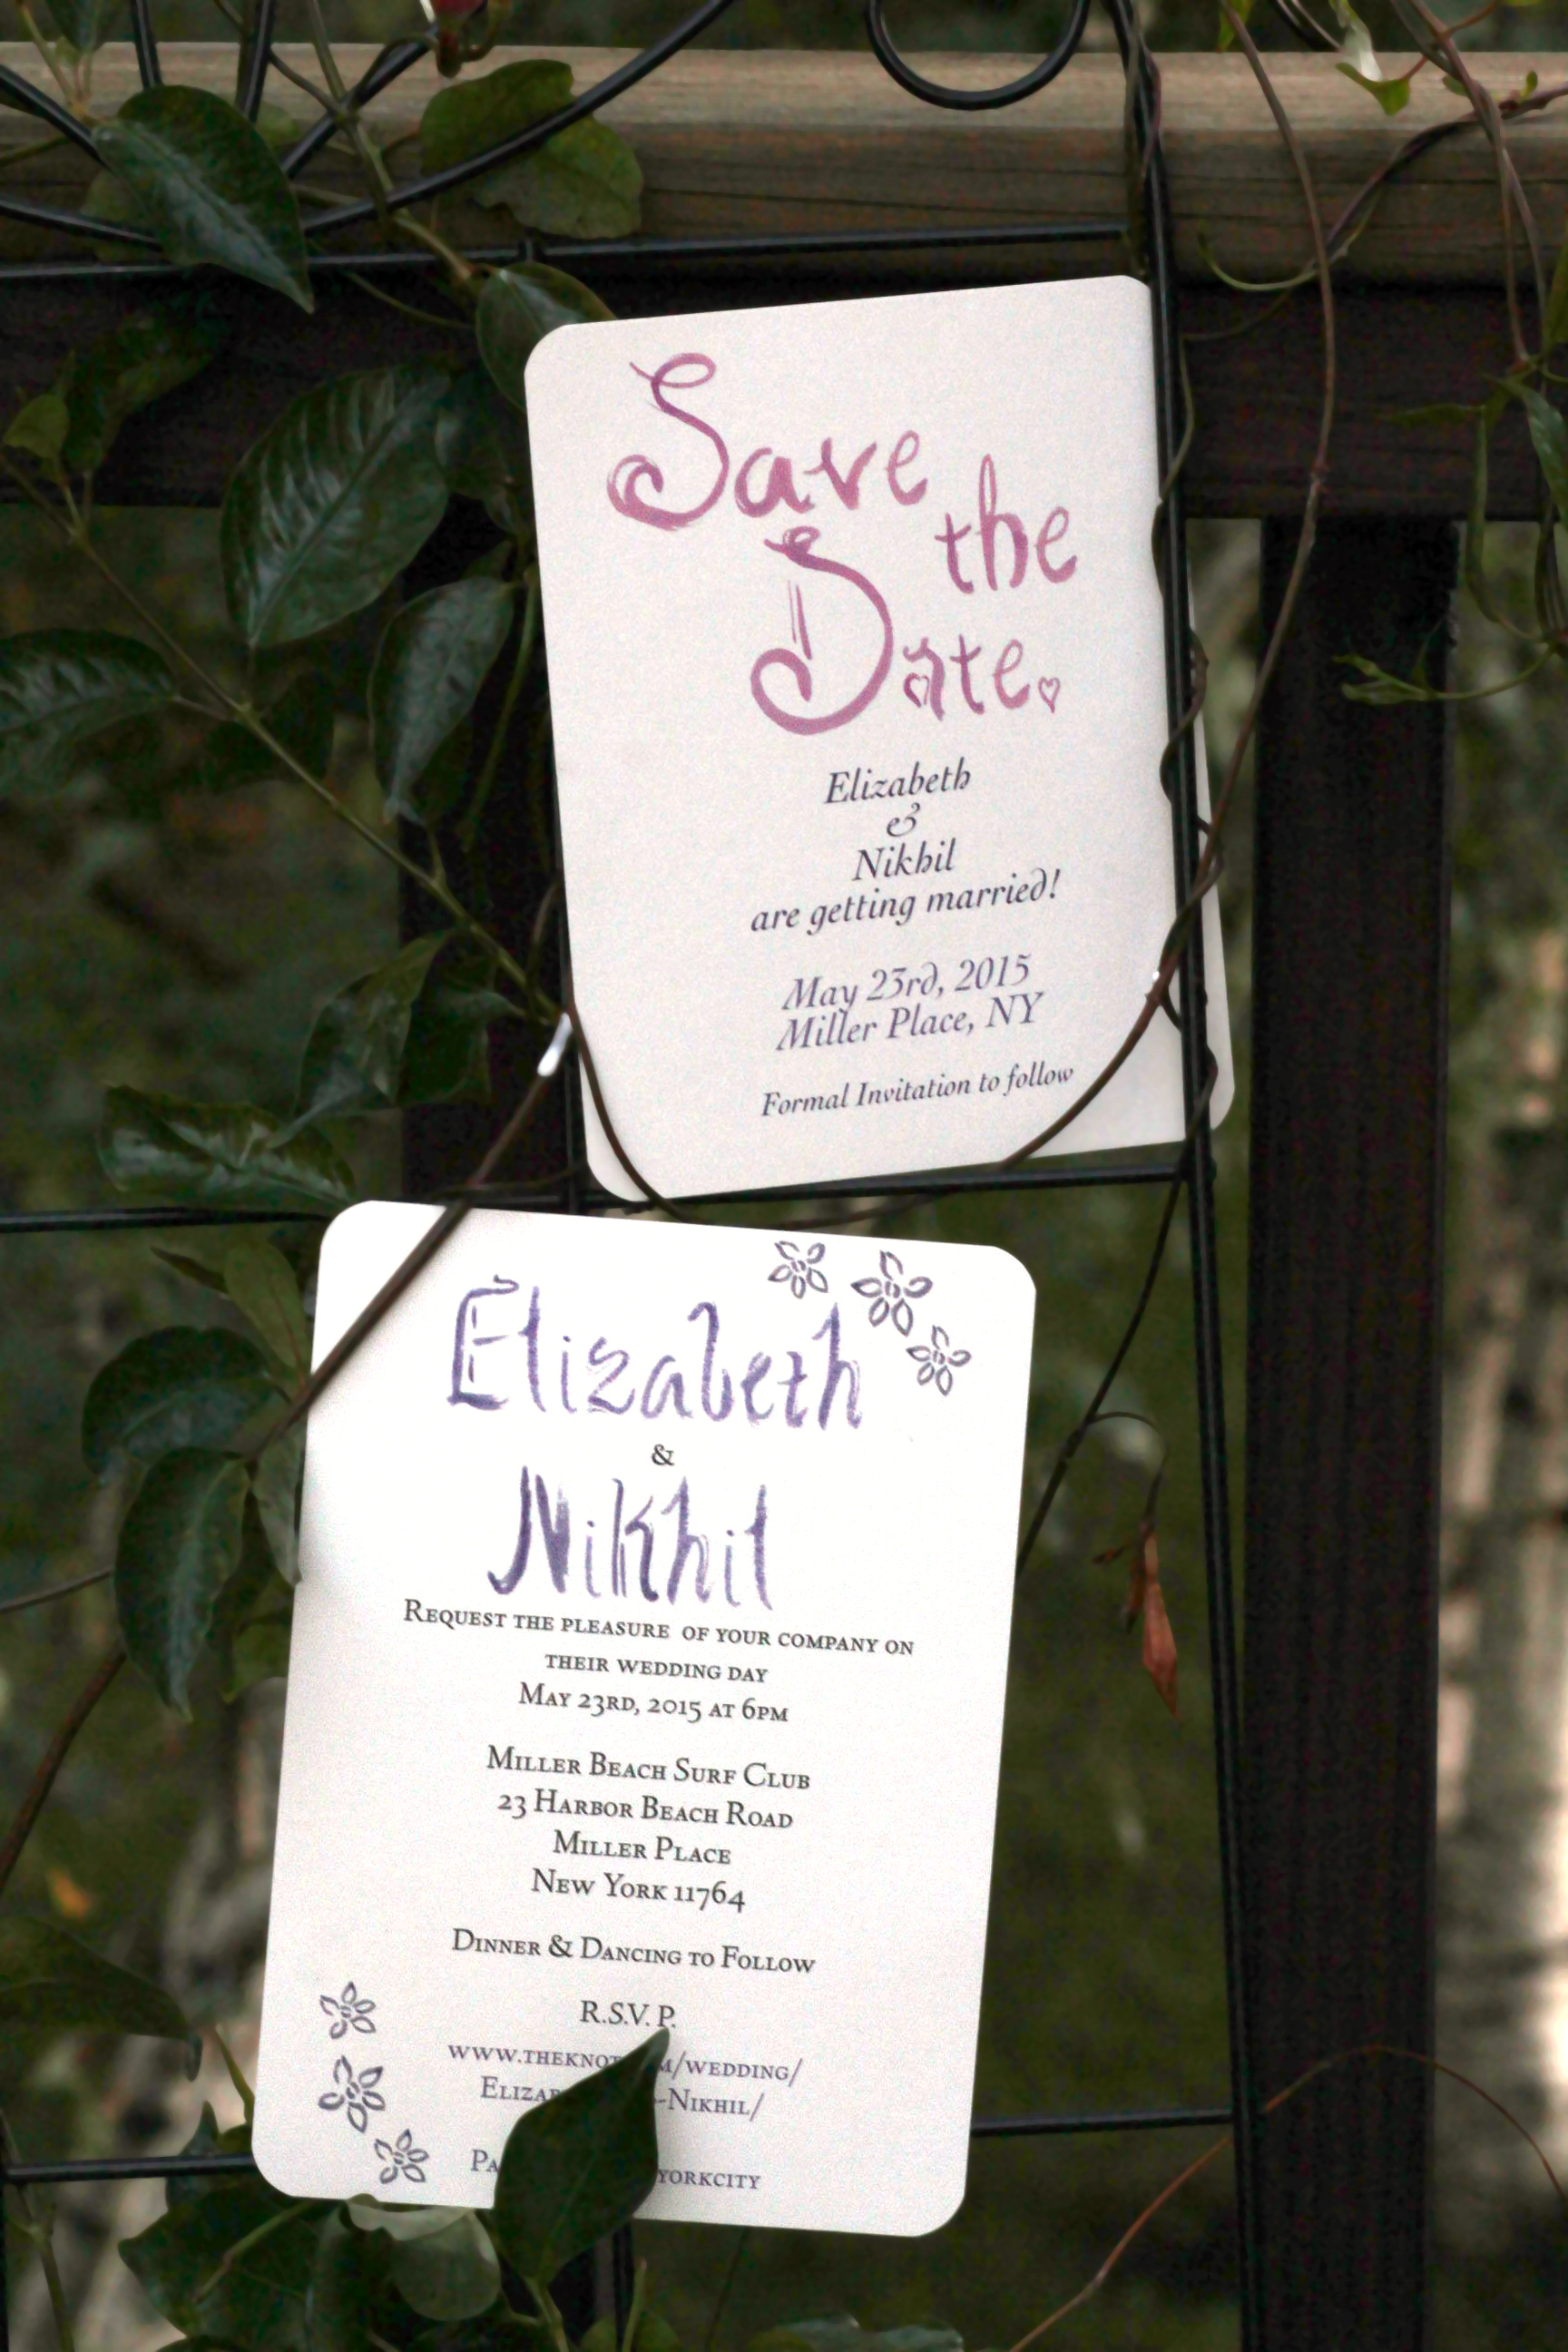 Save
the
Date.
Elizabeth
&
Nikhil
are getting married!
May 23rd, 2015
Miller Place, NY
Formal Invitation to follow
Elizabeth
&
Nikhil
Request the pleasure of your company on
their wedding day
May 23rd, 2015 at 6pm
Miller Beach Surf Club
23 Harbor Beach Road
Miller Place
New York 11764
Dinner & Dancing to Follow
R.S.V.P.
/wedding/
-Nikhil/